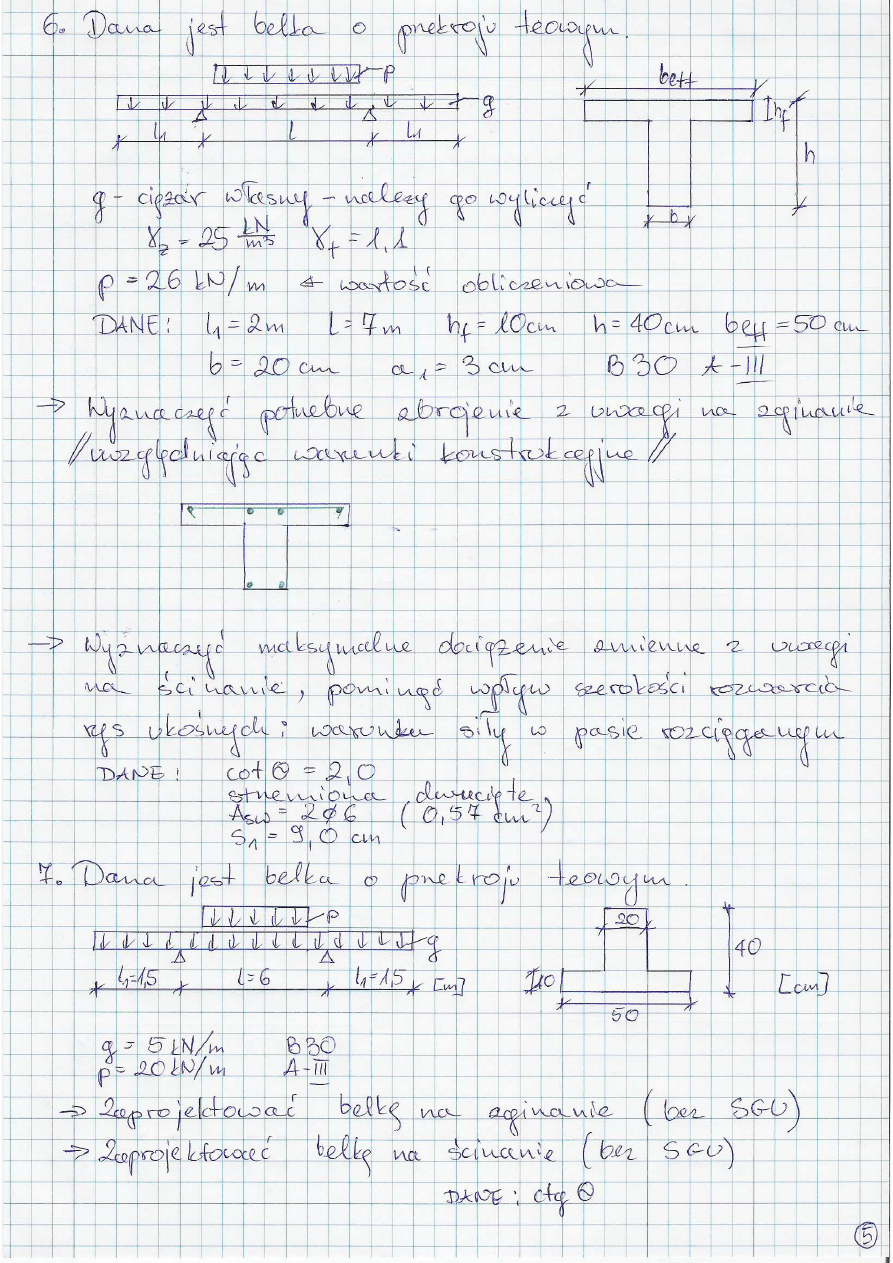 6. Dana jest belka o przekroju teowym.
p
g
l₁ l l₁
beff
hf
h
b
g - ciężar własny - należy go wyliczyć
γż = 25 kN/m³ γf = 1,1
p = 26 kN/m ← wartość obliczeniowa
DANE: l₁ = 2m l = 7m hf = 10cm h = 40cm beff = 50 cm
b = 20 cm a₁ = 3 cm B30 A-III
→ Wyznaczyć potrzebne zbrojenie z uwagi na zginanie
// uwzględniając warunki konstrukcyjne //
→ Wyznaczyć maksymalne obciążenie zmienne z uwagi
na ścinanie, pominąć wpływ szerokości rozwarcia
rys ukośnych i warunku siły w pasie rozciąganym
DANE: cot Θ = 2,0
strzemiona dwucięte
Asw = 2ϕ6 (0,57 cm²)
s₁ = 9,0 cm
7. Dana jest belka o przekroju teowym.
p
g
l₁=1,5 l=6 l₁=1,5 [m]
20
40
10
50
[cm]
g = 5 kN/m B30
p = 20 kN/m A-III
→ Zaprojektować belkę na zginanie (bez SGU)
→ Zaprojektować belkę na ścinanie (bez SGU)
DANE: ctg Θ
5